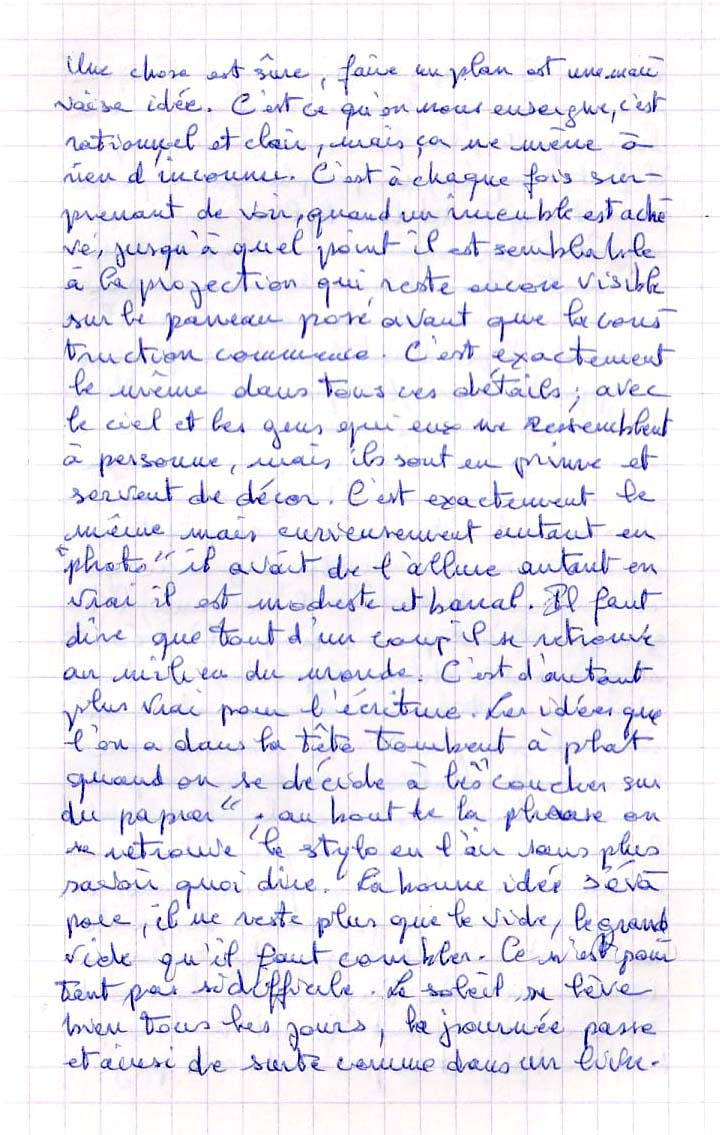 Une chose est sûre, faire un plan est une mau
vaise idée. C'est ce qu'on nous enseigne, c'est
rationnel et clair, mais ça ne mène à
rien d'inconnu. C'est à chaque fois sur-
prenant de voir, quand un immeuble est ache
vé, jusqu'à quel point il est semblable
à la projection qui reste encore visible
sur le panneau posé avant que la cons
truction commence. C'est exactement
le même dans tous ces détails ; avec
le ciel et les gens qui eux ne ressemblent
à personne, mais ils sont en prime et
servent de décor. C'est exactement le
même mais curieusement autant en
"photo" il avait de l'allure autant en
vrai il est modeste et banal. Il faut
dire que tout d'un coup il se retrouve
au milieu du monde. C'est d'autant
plus vrai pour l'écriture. Les idées que
l'on a dans la tête tombent à plat
quand on se décide à les "coucher sur
du papier" ; au bout de la phrase on
se retrouve le stylo en l'air sans plus
savoir quoi dire. La bonne idée s'éva
pore, il ne reste plus que le vide, le grand
vide qu'il faut combler. Ce n'est pour
tant pas si difficile. Le soleil se lève
bien tous les jours, la journée passe
et ainsi de suite comme dans un livre.